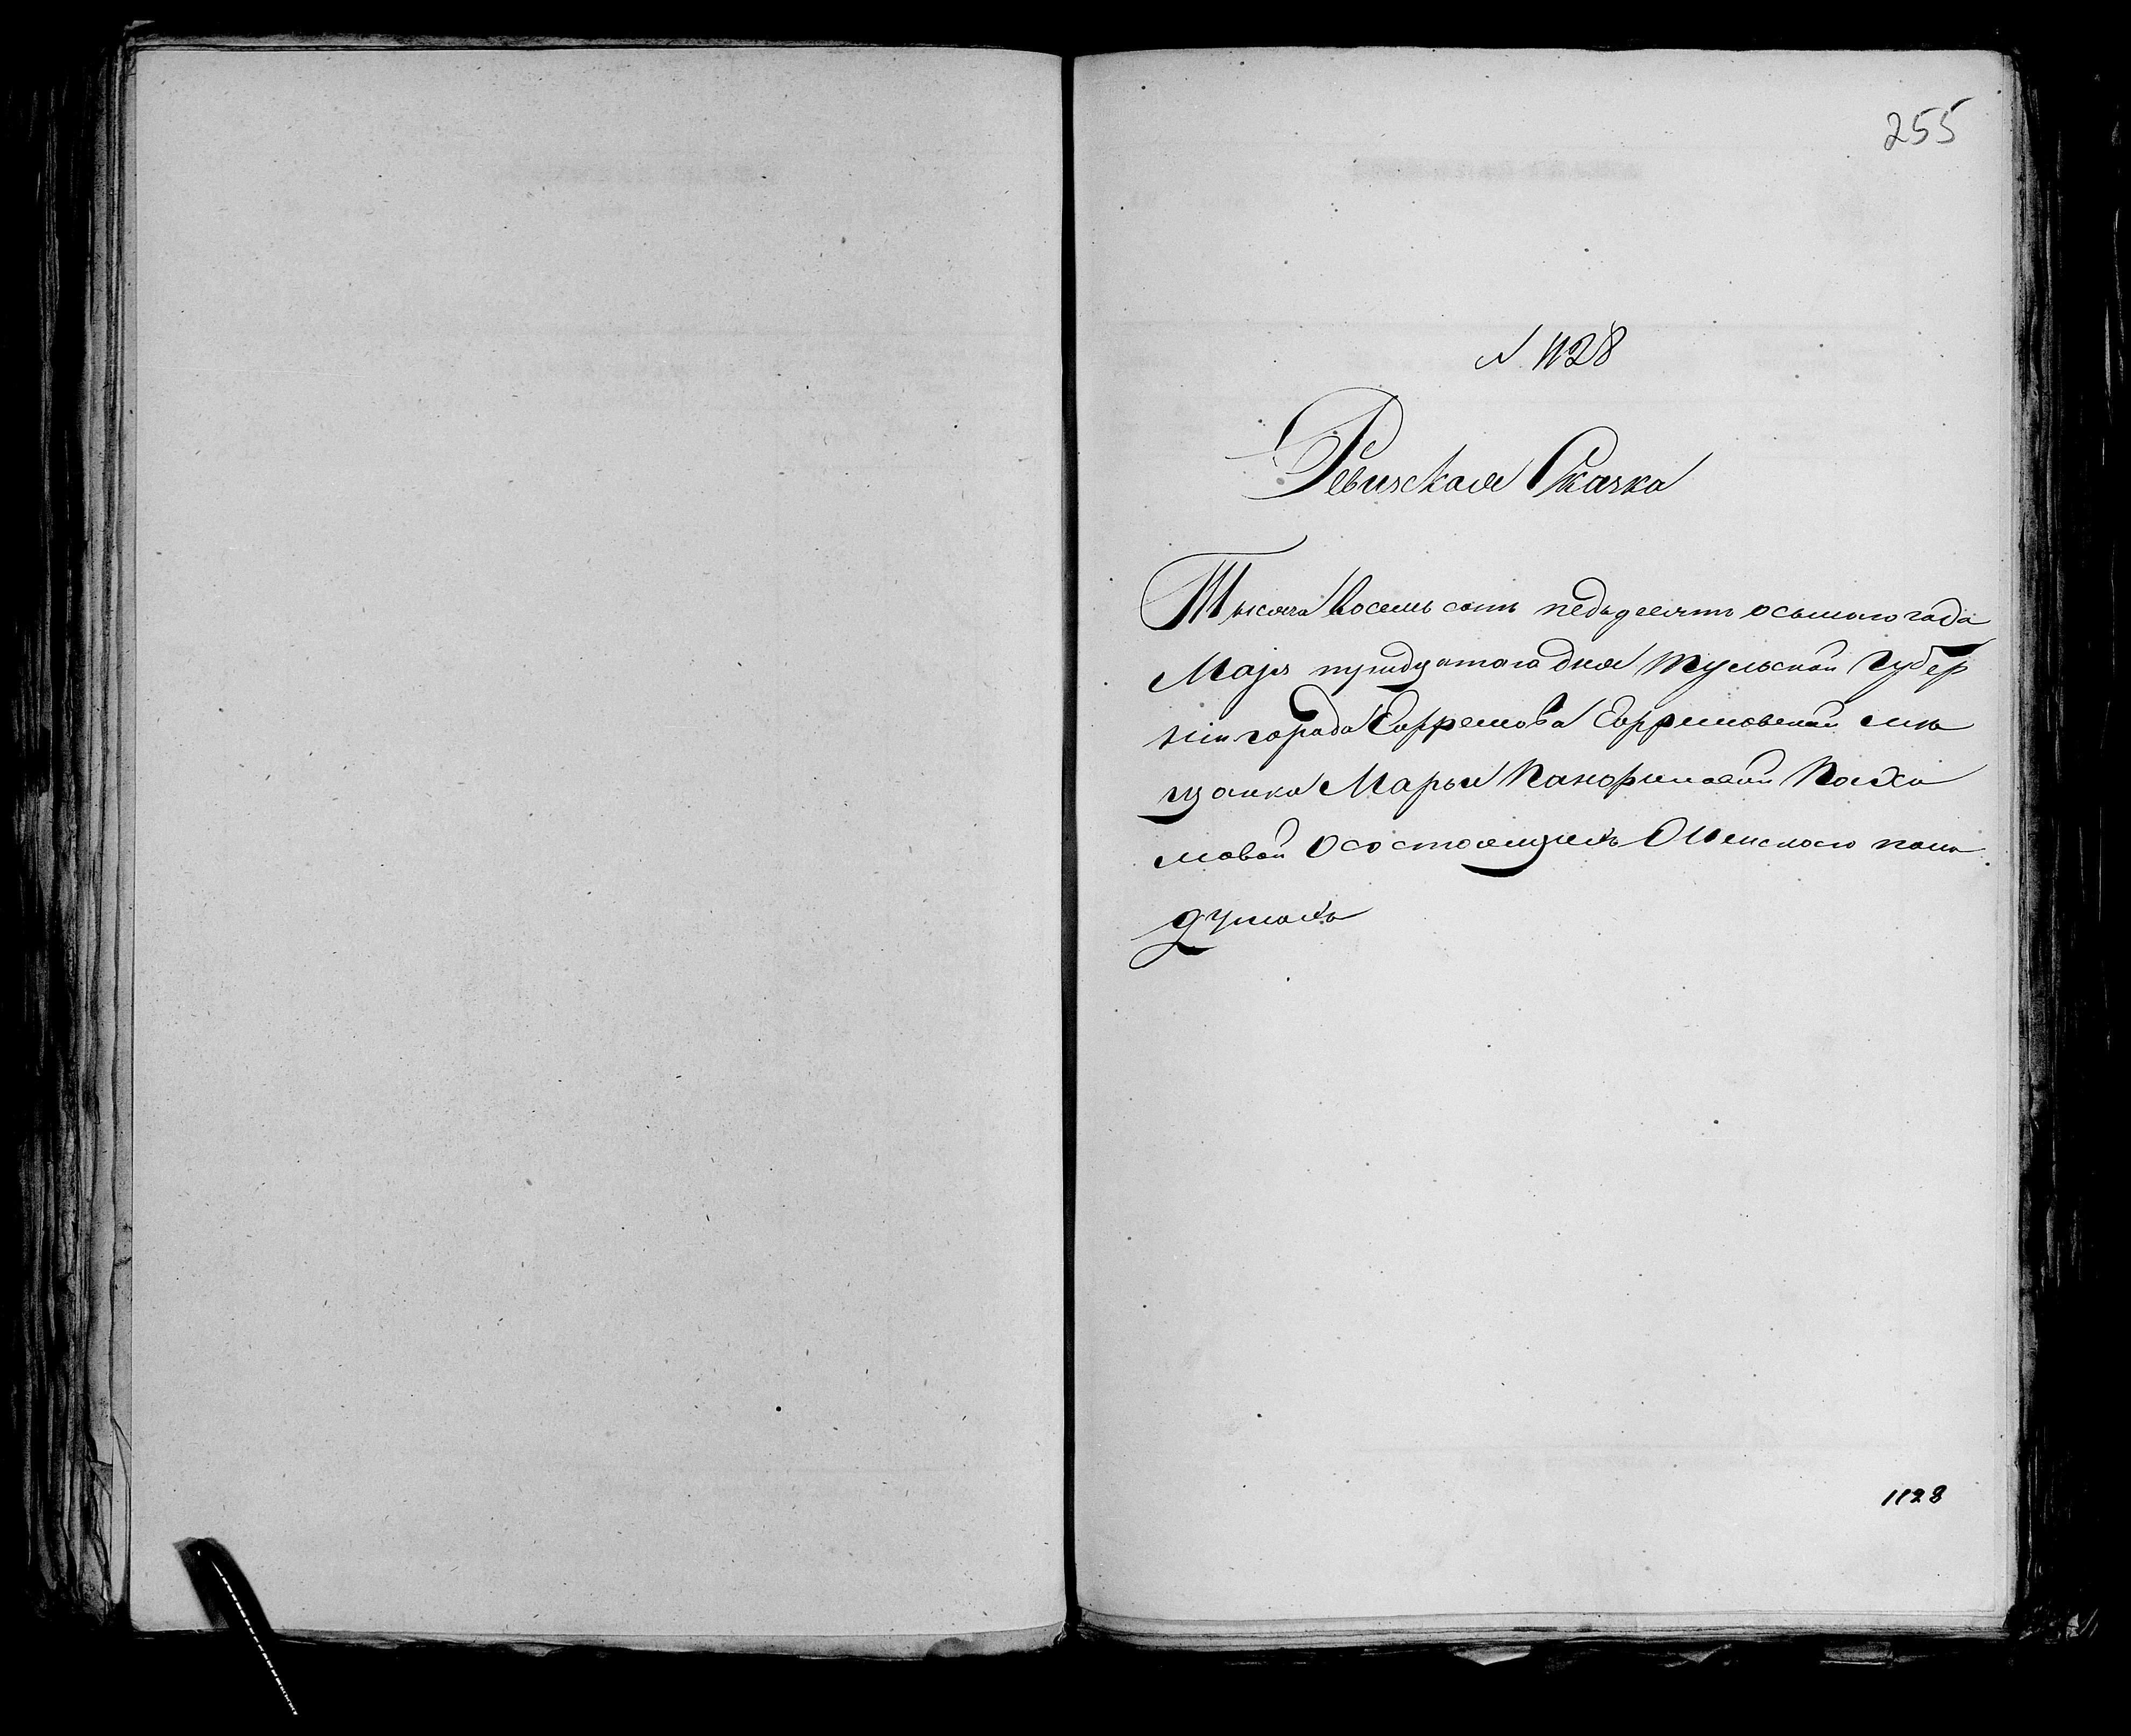 255
N 1128
Ревизская Сказка
Тысяча Восемь сотъ педьдесятъ осьмого года
Маія тридцатого дня Тульской Губер
ніи города Ефремова Ефремовской мѣ
щанки Марьи Панфиловой Пахо
мовой О состоящихъ Женского пола
душахъ
1128